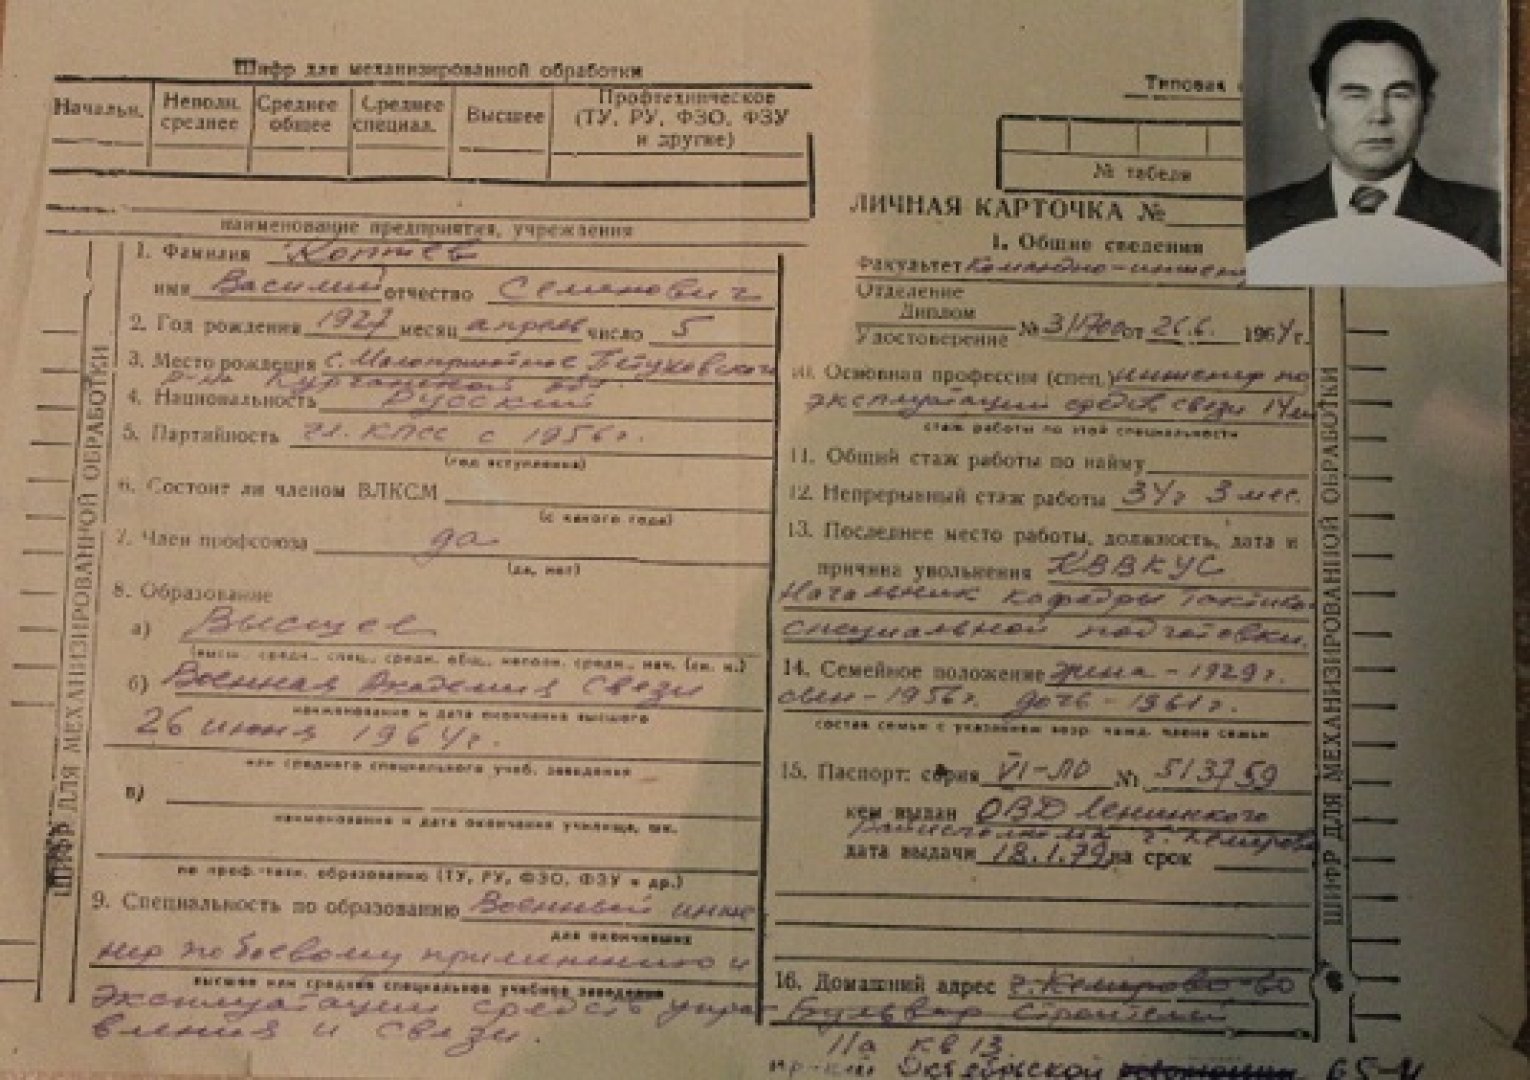 Шифр для механизированной обработки
Начальн. Неполн. среднее Среднее общее Среднее специал. Высшее Профтехническое (ТУ, РУ, ФЗО, ФЗУ и другие)
наименование предприятия, учреждения
1. Фамилия Коптев
имя Василий отчество Семенович
2. Год рождения 1927 месяц апрель число 5
3. Место рождения с. Малоприютное Петуховского
р-на Курганской обл.
4. Национальность Русский
5. Партийность чл. КПСС с 1956 г.
(год вступления)
6. Состоит ли членом ВЛКСМ
(с какого года)
7. Член профсоюза да
(да, нет)
8. Образование
а) Высшее
(высш., средн., спец., средн. общ., неполн. средн., нач. (ск. к.)
б) Военная Академия Связи
наименование и дата окончания высшего
26 июня 1964 г.
или среднего специального учеб. заведения
в)
наименование и дата окончания училища, шк.
по проф.-техн. образованию (ТУ, РУ, ФЗО, ФЗУ и др.)
9. Специальность по образованию Военный инже
для окончивших
нер по боевому применению и
высшее или среднее специальное учебное заведение
эксплуатации средств упра-
вления и связи.
ШИФР ДЛЯ МЕХАНИЗИРОВАННОЙ ОБРАБОТКИ
Типовая
№ табеля
ЛИЧНАЯ КАРТОЧКА №
1. Общие сведения
Факультет Командно-инжен
Отделение
Диплом
Удостоверение № 311700 от 26.6. 1964 г.
10. Основная профессия (спец.) инженер по
эксплуатации средств связи 14 л
стаж работы по этой специальности
11. Общий стаж работы по найму
12. Непрерывный стаж работы 34 г 3 мес.
13. Последнее место работы, должность, дата и
причина увольнения КВВКУС
Начальник кафедры Тактико
специальной подготовки.
14. Семейное положение жена - 1929 г.
сын - 1956 г. дочь - 1961 г.
состав семьи с указанием возр. кажд. члена семьи
15. Паспорт: серия VI-ЛО № 513759
кем выдан ОВД Ленинского
Райисполкома г. Кемерово
дата выдачи 18.1.79 на срок
16. Домашний адрес г. Кемерово-60
Бульвар Строителей
11а кв 13
пр-кт Октябрьской 65-4
ШИФР ДЛЯ МЕХАНИЗИРОВАННОЙ ОБРАБОТКИ